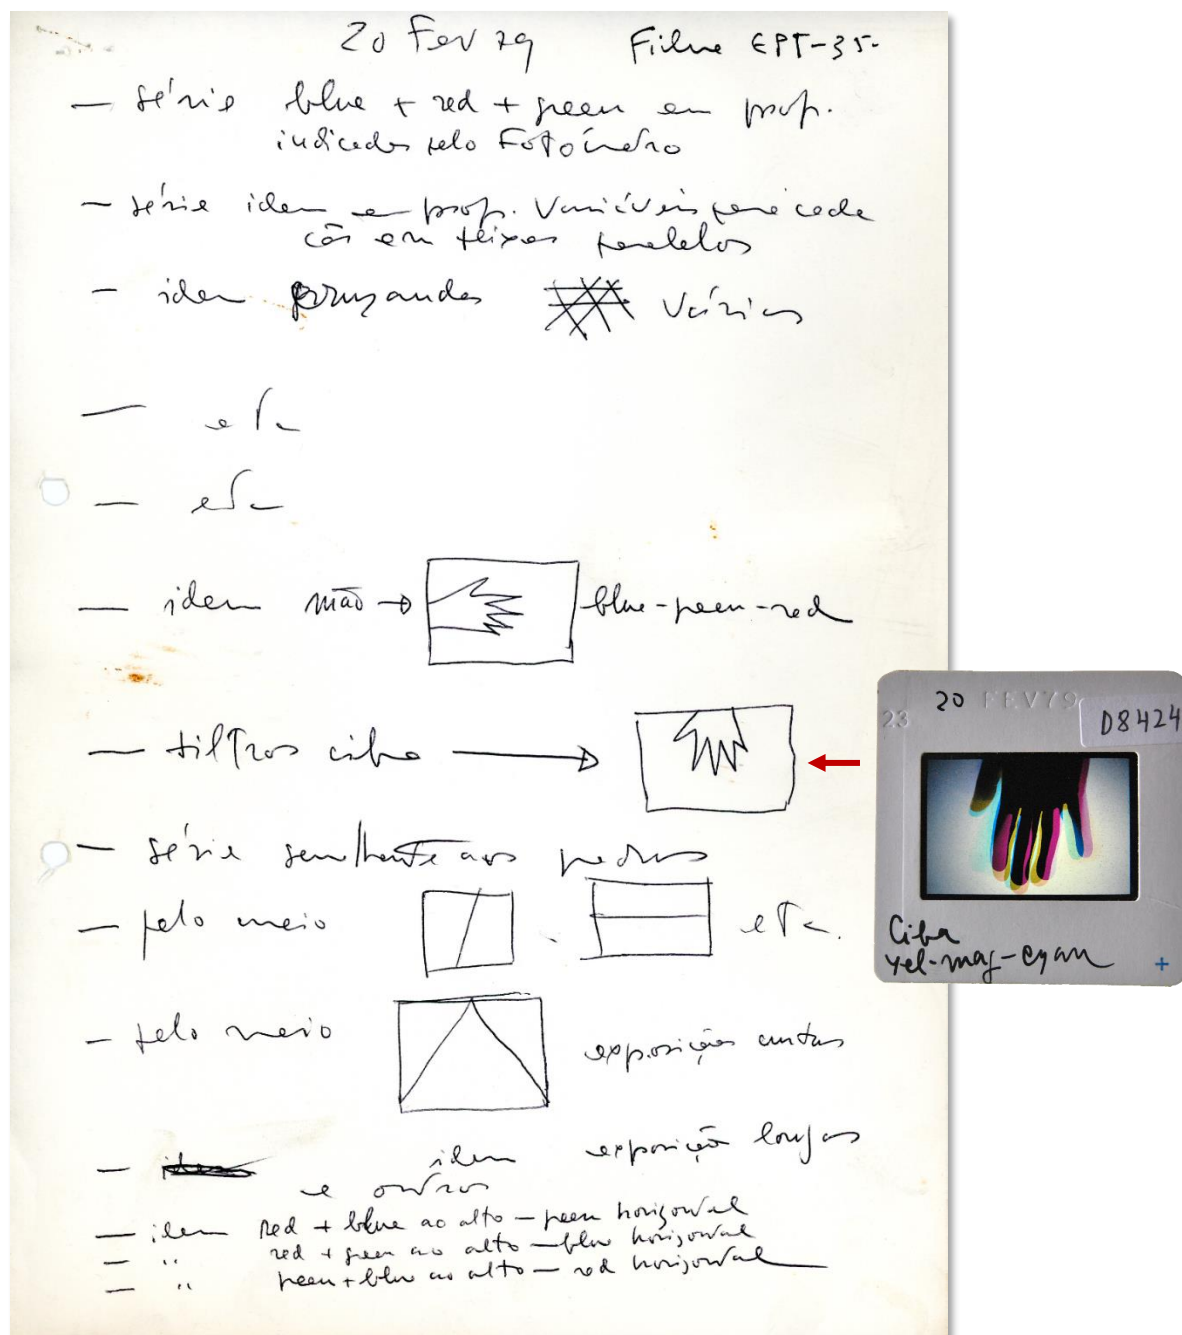 20 Fev 79 Filme EPT-35-
— série blue + red + green em prop.
indicadas pelo Fotómetro
— série idem em prop. Variáveis para cada
côr em feixes paralelos
— idem cruzandos Vários
— etc
— etc
— idem mão → blue-green-red
— filtros ciba →
— série semelhante aos
— pelo meio etc.
— pelo meio exposições curtas
— idem exposição longas
e outros
— idem red + blue ao alto — green horizontal
— " red + green ao alto — blue horizontal
— " green + blue ao alto — red horizontal
23 20 FEV79
D8424
Ciba
yel-mag-cyan
+